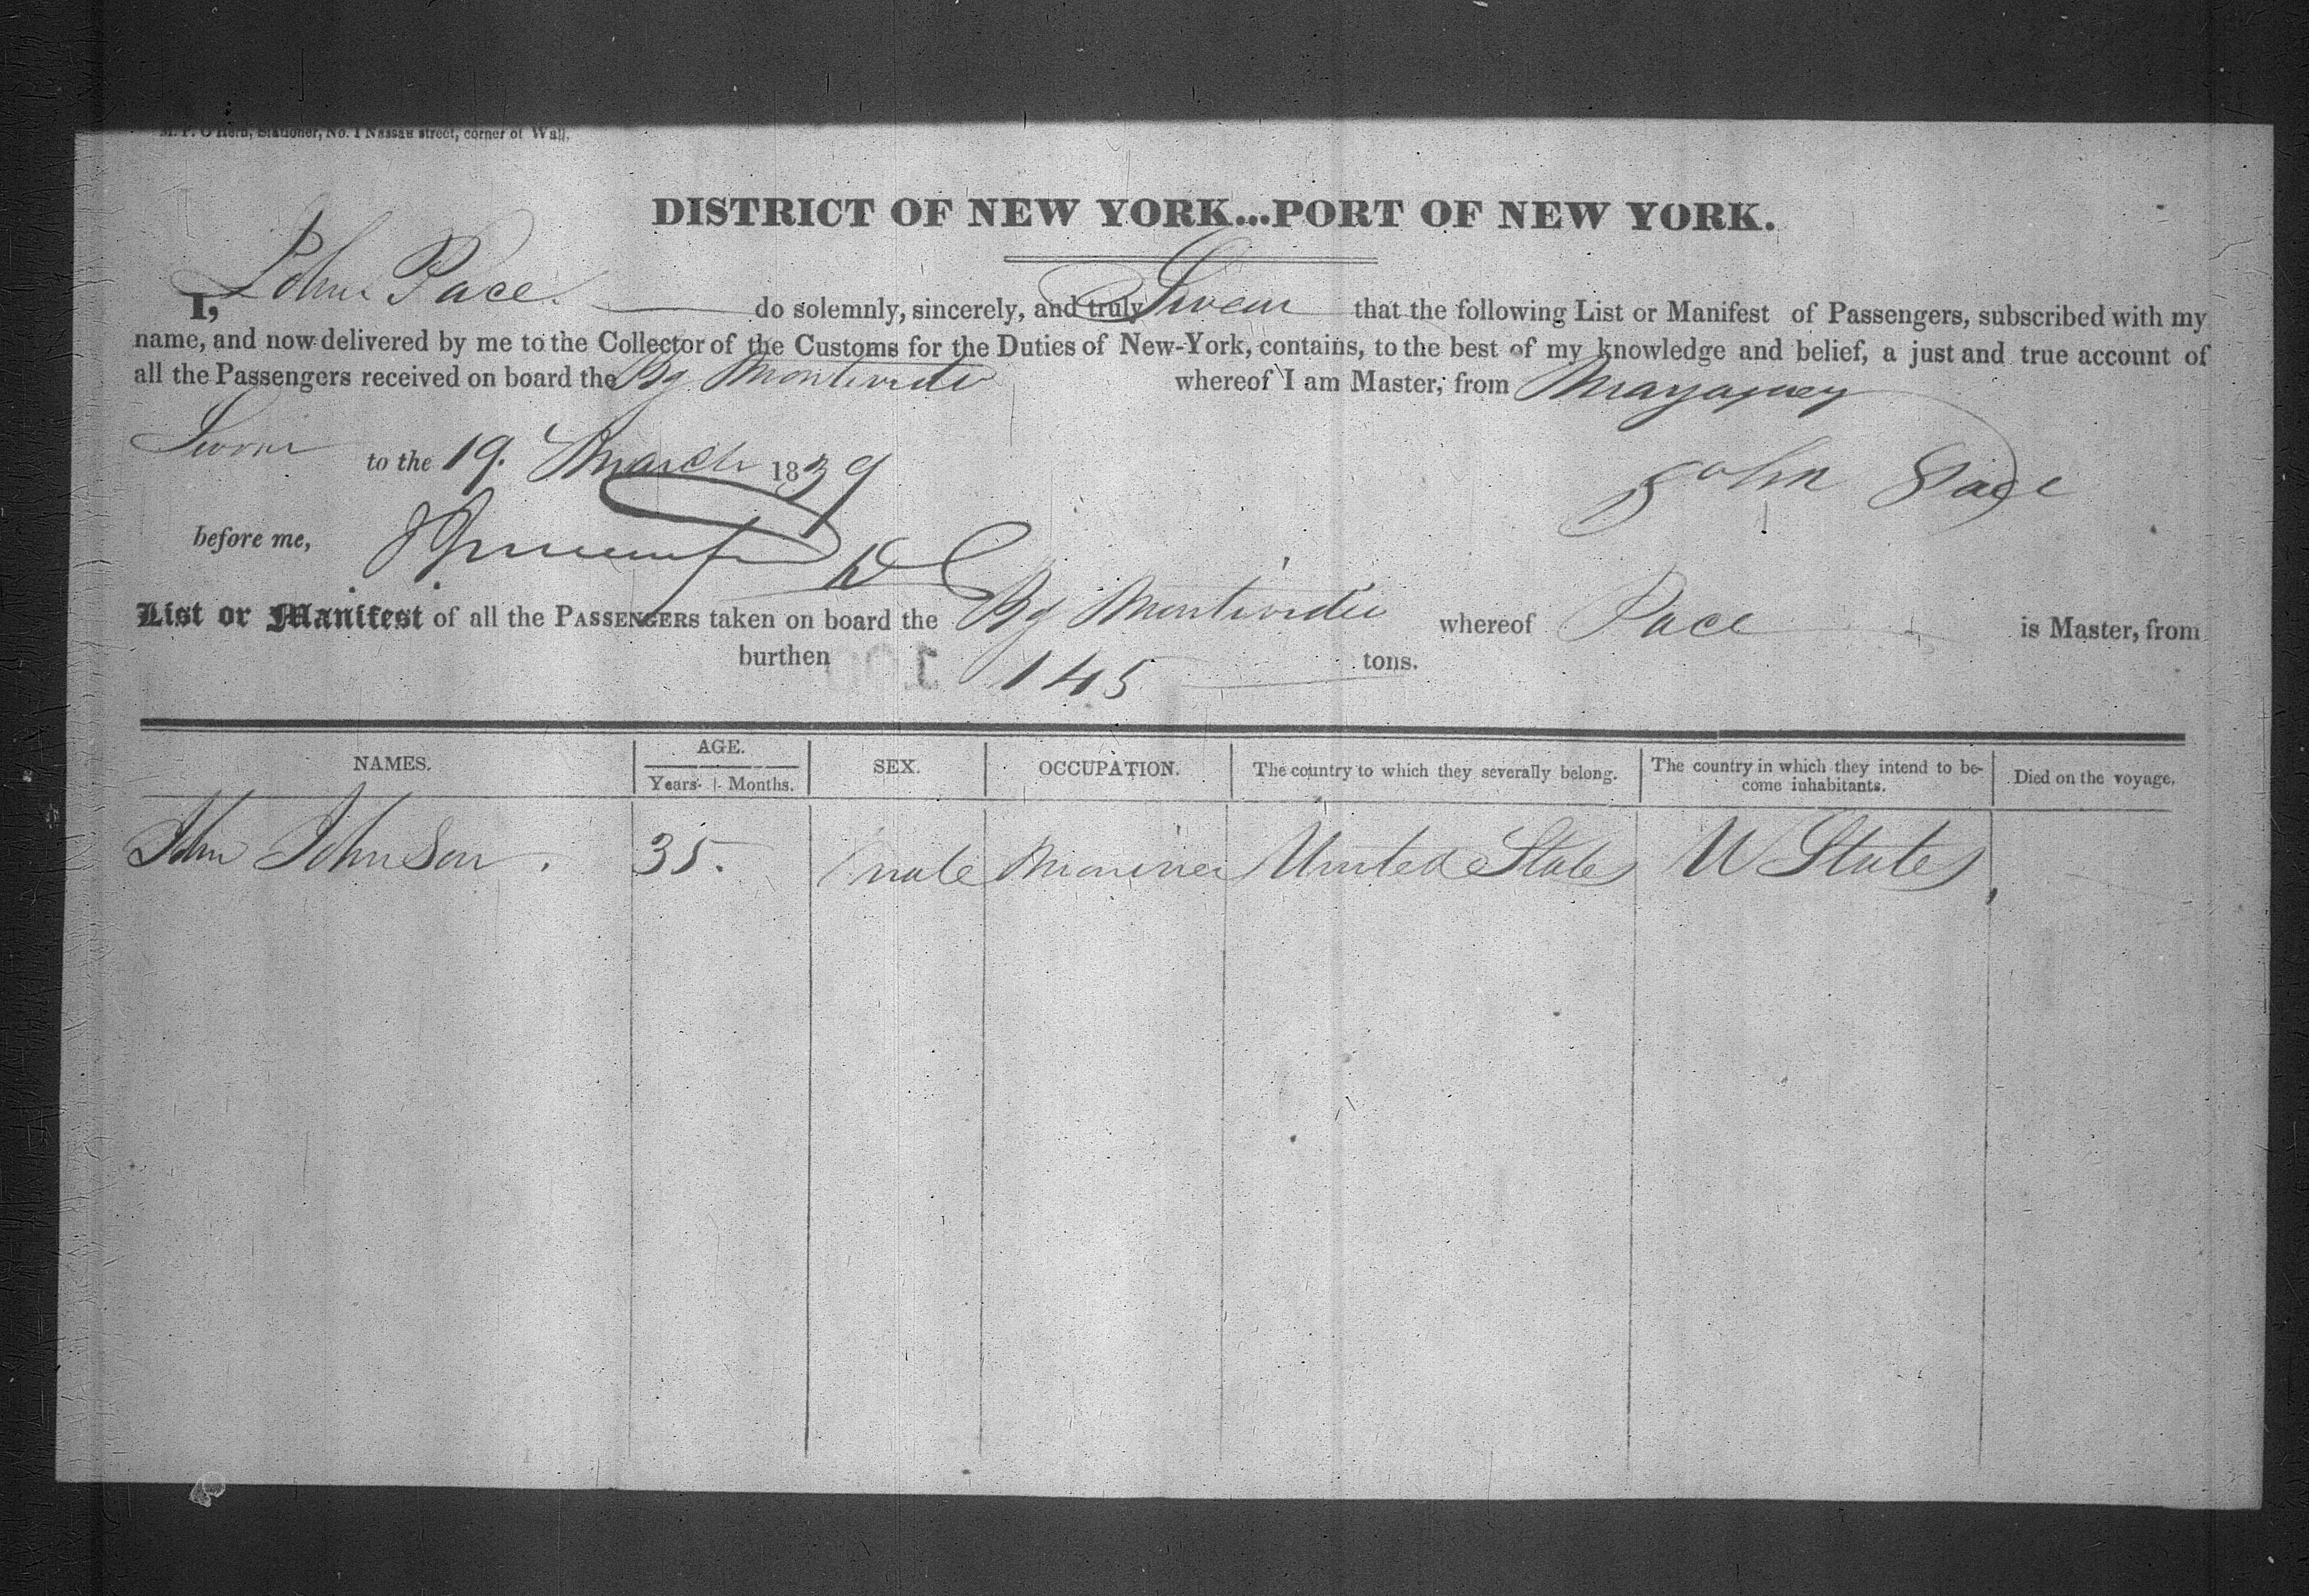 M. P. O'Hern, Stationer, No. 1 Nassau street, corner of Wall.
DISTRICT OF NEW YORK...PORT OF NEW YORK.
I, John Pace do solemnly, sincerely, and truly Swear that the following List or Manifest of Passengers, subscribed with my
name, and now delivered by me to the Collector of the Customs for the Duties of New-York, contains, to the best of my knowledge and belief, a just and true account of
all the Passengers received on board the Bg Montevideo whereof I am Master, from Mayaguez
Sworn to the 19. March 1839
John Pace
before me, DC
List or Manifest of all the PASSENGERS taken on board the Bg Montevideo whereof Pace is Master, from
burthen 145 tons.
NAMES. AGE. Years. Months. SEX. OCCUPATION. The country to which they severally belong. The country in which they intend to be-
come inhabitants. Died on the voyage.
John Johnson. 35. male Mariner United States U States